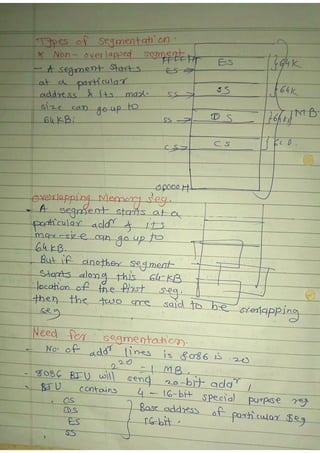 Types of Segmentation.
* Non-overlapped segment
- A segment starts
at a particular
address & its max.
size can go up to
64 KB.
FFFFF H
ES → ES } 64K
SS → SS } 64K
SS → DS } 64K
CS → CS
1 MB
00000 H
Overlapping Memory Seg.
- A segment starts at a
particular addr & its
max-size can go up to
64 KB.
- But if another segment
starts along this 64-KB
location of the first seg.
then the two are said to be overlapping
seg
Need for segmentation.
- No. of addr lines is 8086 is 20
2^20 = 1 MB.
- 8086 BIU will send 20-bit addr
- BIU contains 4 - 16-bit special purpose reg
. CS
DS
ES
. SS
Base address of particular seg
16-bit.